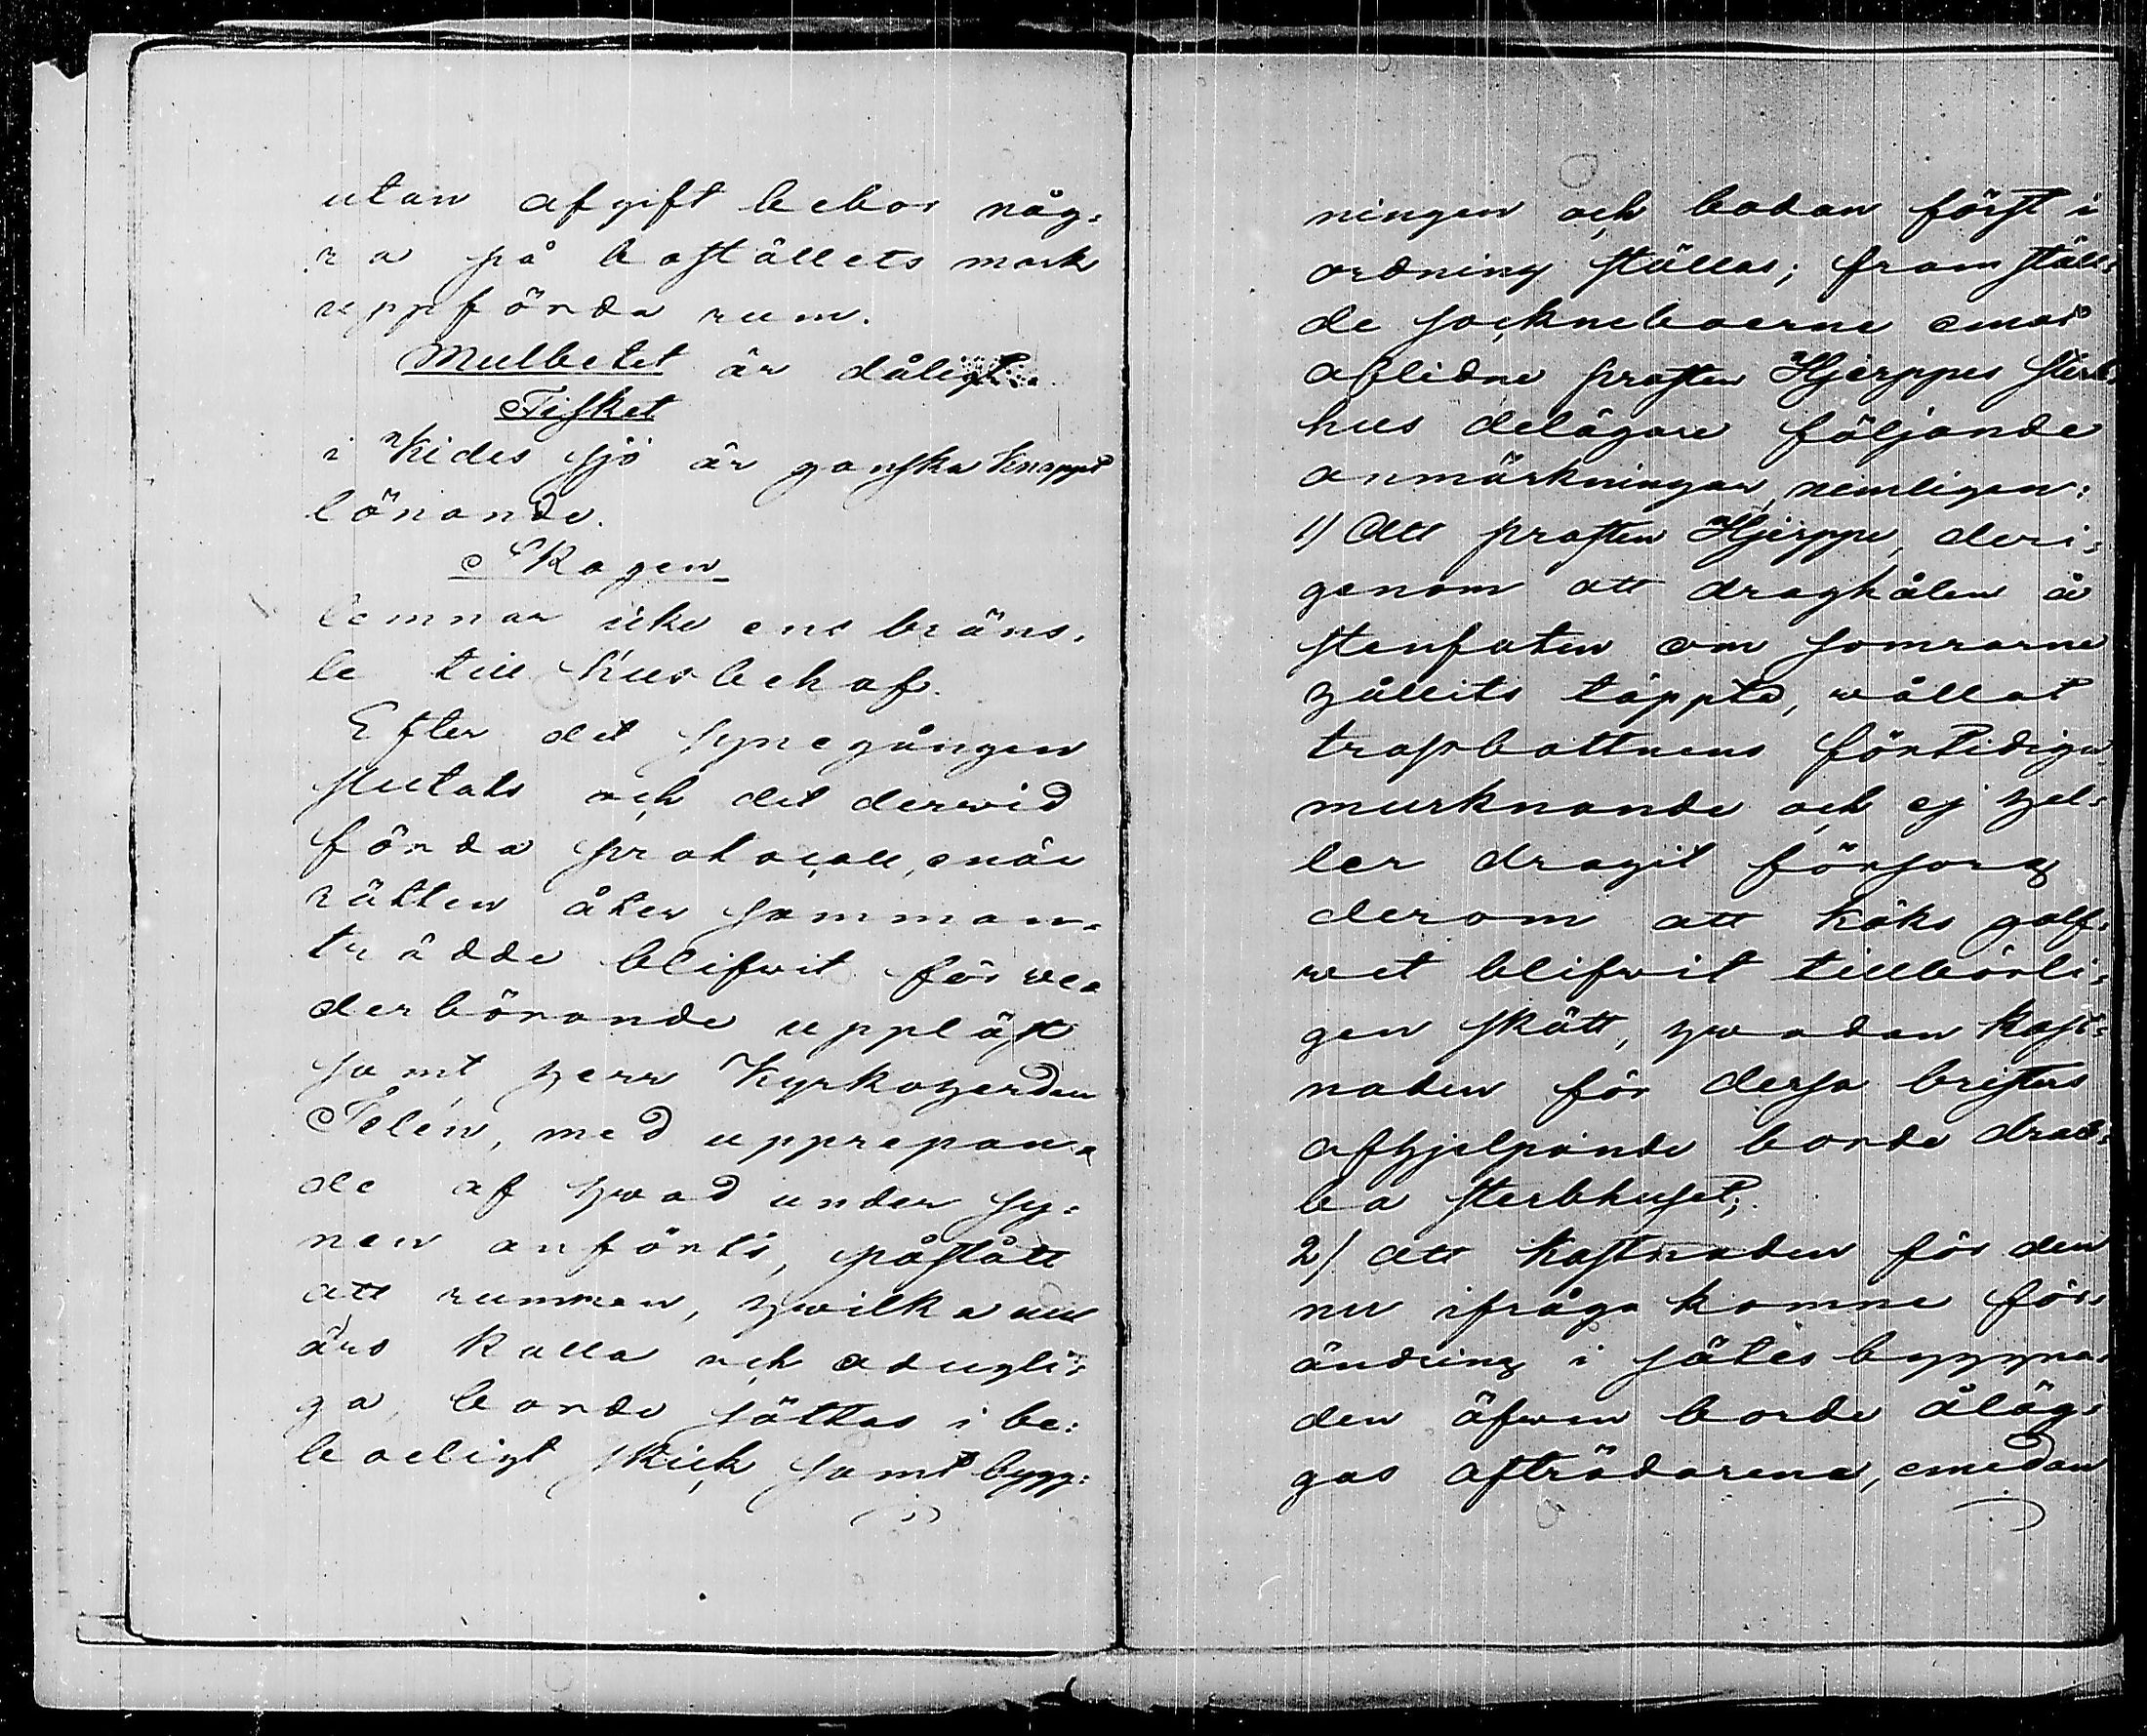 utan afgift bebor någ:
ra på boställets mark
uppförda rum.
Mulbetet är dåligt.
Fisket
i Kides sjö är ganska knappt
lönande.
Skogen
lemnar icke ens bräns.
le till husbehof.
Efter det synegången
slutats och det dervid
förda protocoll, när
rätten åter samman-
trädde blifwit för ve-
derbörande uppläst
samt herr Kyrkoherden
Telén, med upprepan-
de af hwad under sy:
nen anförts, påstått
att rummen, hwilka nu
äro kalla och odugli:
ga, borde sättas i be:
boeligt skick samt bygg:
ningen och bodan först i
ordning ställas; framstäl:
de sockneboerne emot
aflidne prosten Hjerppes sterb:
hus delägare följande
anmärkningar, nemligen:
1) Att prosten Hjerppe, deri:
genom att draghålen å
stenfoten om somrarne
hållits täppta, vållat
trossbottnens förtidiga
murknande och ej hel:
ler dragit försorg
derom att köks golf:
wet blifvit tillbörli:
gen skött, hwadan kost:
naden för dessa bristers
afhjelpande borde drab:
ba sterbhuset;
2) att kostnaden för den
nu ifråga komne för:
ändring i sätesbyggna:
den äfwen borde åläg:
gas afträdarena, emedan